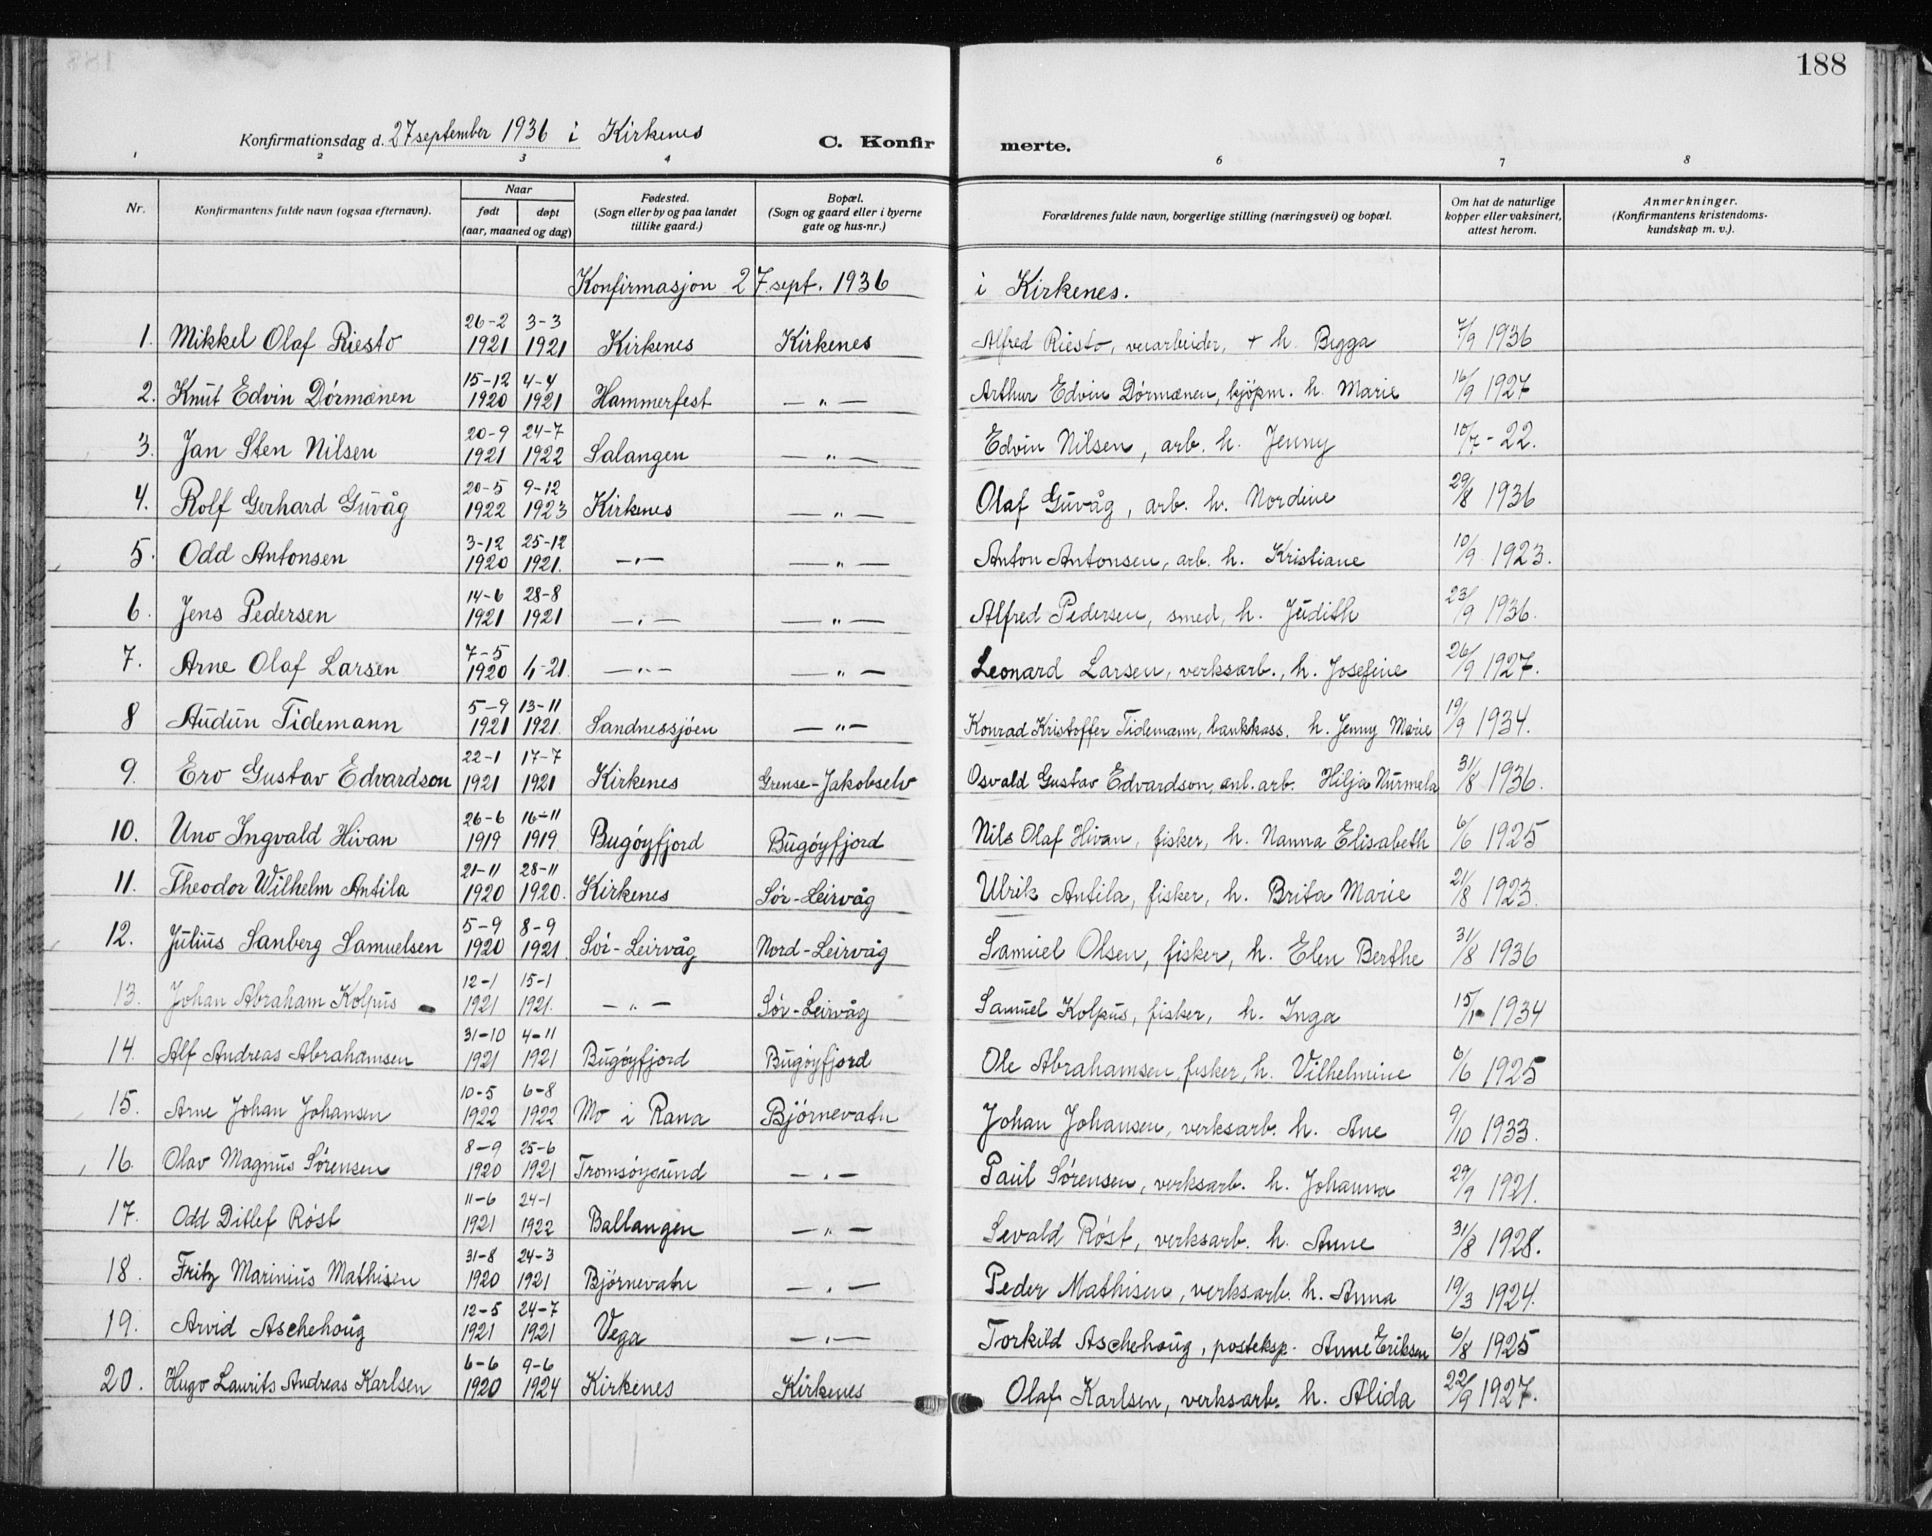 188
Konfirmationsdag d. 27 september 1936 i Kirkenes
C. Konfirmerte.
1 2 3 4 6 7 8
Nr. Konfirmantens fulde navn (ogsaa efternavn). Naar født døpt (aar, maaned og dag) Fødested. (Sogn eller by og paa landet tillike gaard.) Bopæl. (Sogn og gaard eller i byerne gate og hus-nr.) Forældrenes fulde navn, borgerlige stilling (næringsvei) og bopæl. Om hat de naturlige kopper eller vaksinert, attest herom. Anmerkninger. (Konfirmantens kristendomskundskap m. v.).
Konfirmasjon 27 sept. 1936 i Kirkenes.
1. Mikkel Olaf Riesto 26-2 1921 3-3 1921 Kirkenes Kirkenes Alfred Riesto, + h. Bigga 7/9 1936
2. Knut Edvin Dørmænen 15-12 1920 4-4 1921 Hammerfest — " — Arthur Edvin Dørmænen, kjøpm. h. Marie 16/9 1927
3. Jan Sten Nilsen 20-9 1921 24-7 1922 Salangen — " — Edvin Nilsen, arb. h. Jenny 10/7 - 22.
4. Rolf Gerhard Guvåg 20-5 1922 9-12 1923 Kirkenes — " — Olaf Guvåg, arb. h. Nordine 29/8 1936
5. Odd Antonsen 3-12 1920 25-12 1921. — " — — " — Anton Antonsen, arb. h. Kristiane 10/9 1923.
6. Jens Pedersen 14-6 1921 28-8 1921 — " — — " — Alfred Pedersen, smed, h. Judith 23/9 1936.
7. Arne Olaf Larsen 7-5 1920 21. — " — — " — Leonard Larsen, verksarb., h. Josefine 26/9 1927.
8 Audun Tidemann 5-9 1921 13-11 1921. Sandnessjøen — " — Konrad Kristoffer Tidemann, bankkass. h. Jenny Marie 19/9 1934.
9. Ero Gustav Edvardson 22-1 1921 17-7 1921 Kirkenes Grense-Jakobselv Osvald Gustav Edvardson, anl. arb. Hilja Nurmela 31/8 1936.
10. Uno Ingvald Hivan 26-6 1919 16-11 1919 Bugøyfjord Bugøyfjord Nils Olaf Hivan, fisker, h. Nanna Elisabeth 6/6 1925
11. Theodor Wilhelm Antila 21-11 1920 28-11 1920. Kirkenes Sør-Leirvåg Ulrik Antila, fisker, h. Brita Marie 21/8 1923.
12. Julius Sanberg Samuelsen 5-9 1920 8-9 1921. Sør-Leirvåg Nord-Leirvåg Samuel Olsen, fisker, h. Elen Berthe 31/8 1936
13. Johan Abraham Kolpus 12-1 1921 15-1 1921. — " — Sør-Leirvåg Samuel Kolpus, fisker, h. Inga 1934
14. Alf Andreas Abrahamsen 31-10 1921 4-11 1921 Bugøyfjord Bugøyfjord Ole Abrahamsen, fisker, h. Vilhelmine 6/6 1925
15. Arne Johan Johansen 10-5 1922 6-8 1922 Mo i Rana Bjørnevatn Johan Johansen, verksarb. h. Ane 9/10 1933.
16. Olav Magnus Sørensen 8-9 1920 25-6 1921 Tromsøysund — " — Paul Sørensen, verksarb. h. Johanna 29/9 1921.
17. Odd Ditlef Røst 11-6 1921 24-1 1922 Ballangen — " — Sevald Røst, verksarb. h. Anne 31/8 1928.
18. Fritz Marinius Mathisen 31-8 1920 24-3 1921 Bjørnevatn — " — Peder Mathisen, verksarb. h. Anna 19/3 1924.
19. Arvid Aschehoug 12-5 1921 24-7 1921 Vega — " — Torkild Aschehoug, posteksp. Anne Eriksen 6/8 1925
20. Hugo Laurits Andreas Karlsen 6-6 1920 9-6 1924 Kirkenes Kirkenes Olaf Karlsen, verksarb. h. Alida 22/9 1927.